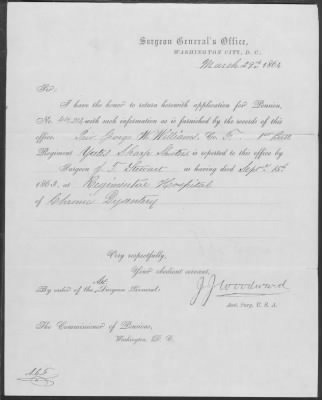 Surgeon General's Office,
WASHINGTON CITY, D. C.
March 29th 1864
Sir:
I have the honor to return herewith application for Pension,
No. with such information as is furnished by the records of this
office. George W. Williams, Co. 1st Batt.
Regiment Yates Sharp Shooters is reported to this office by
Surgeon J. T. Stewart as having died Sept. 15th
1863, at Regimental Hospital
of Chronic Dysentery
Very respectfully,
Your obedient servant,
By order of the Act. Surgeon General:
J J Woodward
Asst. Surg. U. S. A.
The Commissioner of Pensions,
Washington, D. C.
165